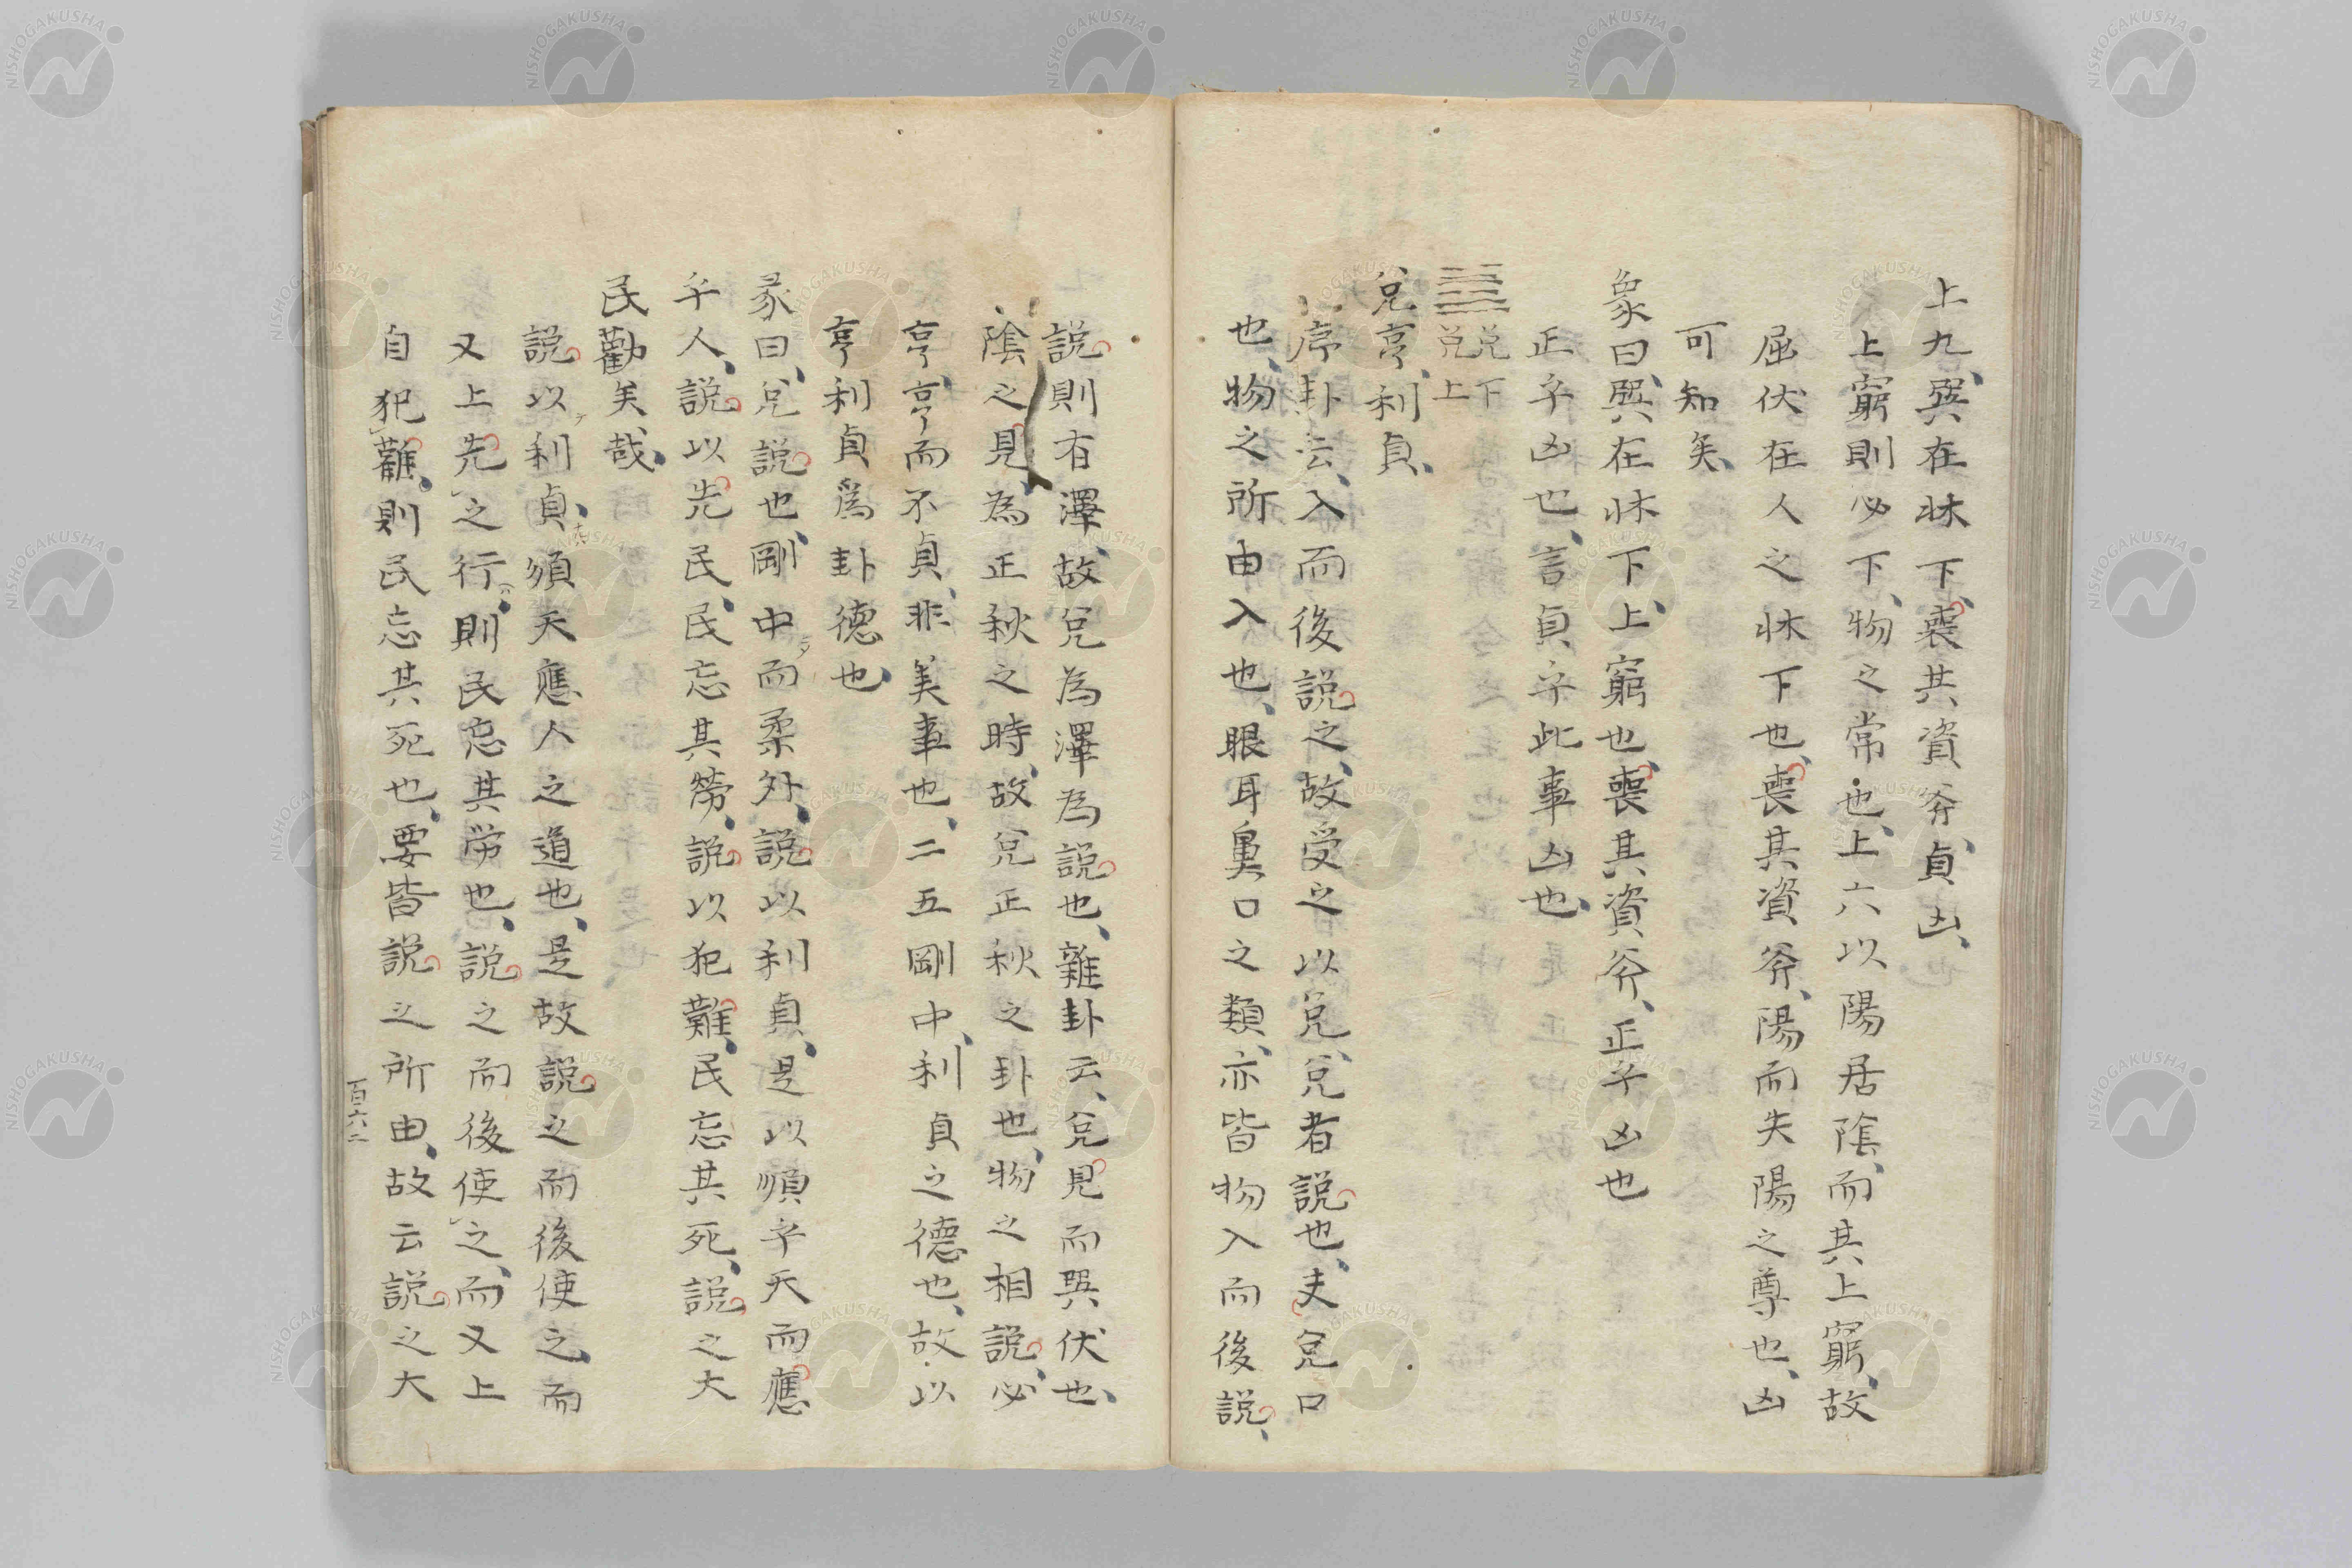 上九、巽在牀下、喪其資斧、貞凶、
上窮則必下、物之常也、上六以陽居陰、而其上窮、故
屈伏在人之牀下也、喪其資斧、陽而失陽之尊也、凶
可知矣、
象曰、巽在牀下、上窮也、喪其資斧、正乎凶也
正乎凶也、言貞乎此事凶也、
兌下
兌上
兌亨、利貞、
序卦云、入而後説之、故受之以兌、兌者説也、夫兌口
也、物之所由入也、眼耳鼻口之類、亦皆物入而後説、
説則有澤、故兌為澤為説也、雜卦云、兌見而巽伏也、
陰之見、為正秋之時、故兌正秋之卦也、物之相説、必
亨、亨而不貞、非美事也、二五剛中、利貞之德也、故以
亨利貞爲卦德也、
彖曰、兌説也、剛中而柔外、説以利貞、是以順乎天而應
乎人、説以先民、民忘其勞、説以犯難、民忘其死、説之大
民勸矣哉、
説以利貞、順天應人之道也、是故説之而後使之、而
又上先之行、則民忘其労也、説之而後使之、而又上
自犯難、則民忘其死也、要皆説之所由、故云説之大
百六二
NISHOGAKUSHA